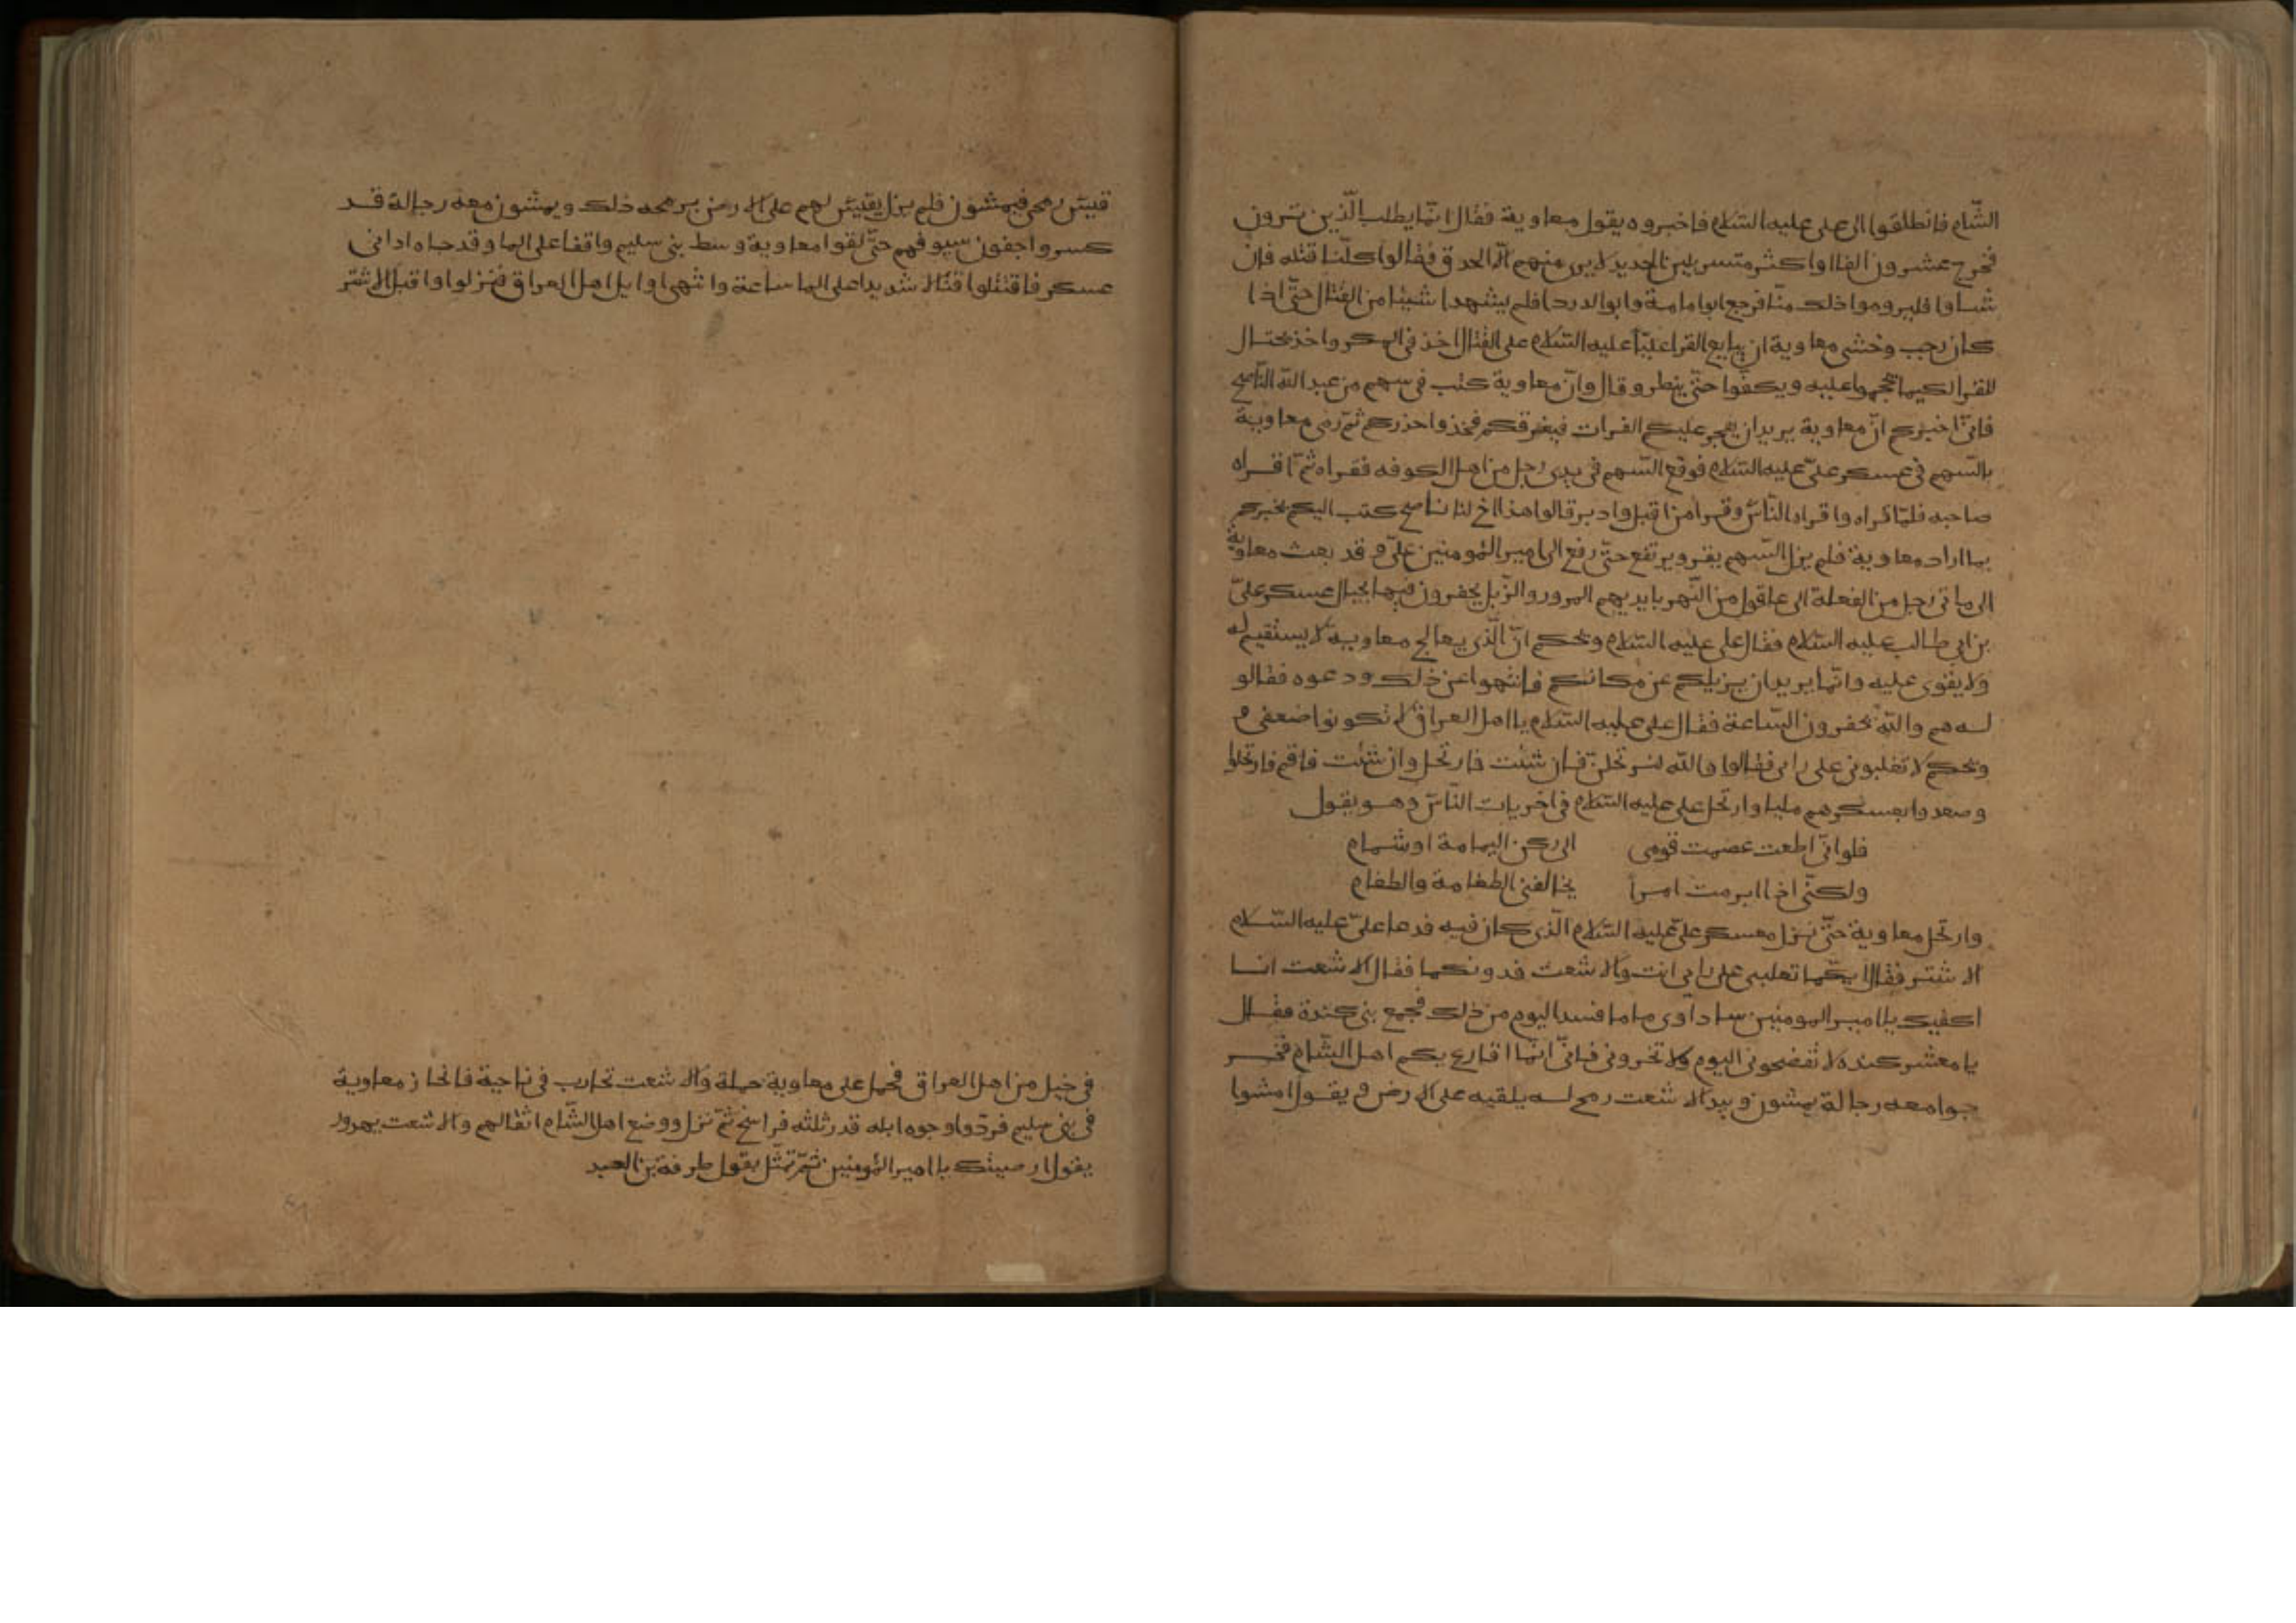 الشّام فانطلقوا الى على عليه السّلام فاخبروه يقول معاوية فقال انّما يطلب الّذين ترون
فخرج عشرون الفا او اكثر متسربلين الحديد لا يرى منهم الّا الحدق فقالوا كلّنا قتله فان
شاوا فليروموا ذلك منّا فرجع ابو امامة وابو الدردا فلم يشهدا شيئا من القتال حتّى اذا
كان رجب وخشى معاوية ان يبايع القرا عليّا عليه السّلام على القتال اخذ فى المكر واخذ يحتال
للقرا لكيما يحجموا عليه ويكفوا حتّى ينظر وقال وانّ معاوية كتب فى سهم من عبد الله النّاصح
فانّى اخبركم انّ معاوية يريد ان يفجر عليكم الفرات فيغرقكم فخذوا حذركم ثمّ رمى معاوية
بالسّهم فى عسكر علىّ عليه السّلام فوقع السّهم فى يدى رجل من اهل الكوفه فقراه ثمّ اقراه
صاحبه فلمّا قراه واقراه النّاس وقرا من اقبل وادبر قالوا هذا اخ لنا ناصح كتب اليكم يخبركم
بما اراد معاوية فلم يزل السّهم يقرو يرتفع حتّى رفع الى امير المومنين علىّ م قد بعث معاوية
الى ماتى رجل من الفعلة الى عاقول من النّهر بايديهم المرور والزّبل يحفرون فيها بحيال عسكر علىّ
بن ابى طالب عليه السّلام فقال على عليه السّلام ويحكم انّ الّذى يعالج معاوية لا يستقيم له
ولا يقوى عليه وانّما يريد ان يزيلكم عن مكانكم فانتهوا عن ذلك ودعوه فقالو
له هم والله يحفرون السّاعة فقال على عليه السّلام يا اهل العراق لا تكونوا ضعفى م
ويحكم لا تغلبونى على رايى فقالوا والله لنرتحلنّ فان شئت فارتحل وان شئت فاقم فارتحلوا
وصعدوا بعسكرهم مليا وارتحل على عليه السّلام فى اخريات النّاس وهو يقول
فلو انّى اطعت عصمت قومى الى ركن اليمامة او شمام
ولكنّى اذا ابرمت امرا يخالفنى الطغامة والطغام
وارتحل معاوية حتّى نزل معسكر علىّ عليه السّلام الّذى كان فيه فدعا علىّ عليه السّلام
الاشتر فقال ايكما تغلبى على رايى انت والاشعث فدونكما فقال الاشعث انا
اكفيك يا امير المومنين ساداوى ما افسد اليوم من ذلك فجمع بنى كندة فقال
يا معشر كنده لا تفضحونى اليوم ولا تخرونى فانّى انّما اقارع بكم اهل الشّام فخر
جوا معه رجالة يمشون وبيد الاشعث رمح له يلقيه على الارض و يقول امشوا
قيس رمحى فيمشون فلم يزل يقيس لهم على الارض برمحه ذلك ويمشون معه رجالة قد
كسروا جفون سيوفهم حتّى لقوا معاوية وسط بنى سليم واقفا على الما وقد جاه ادانى
عسكر فاقتتلوا قتالا شديدا على الما ساعة وانتهى اوايل اهل العراق فنزلوا واقبل الاشتر
فى خيل من اهل العراق فحمل على معاوية حملة والاشعث تحارب فى ناحية فانحاز معاوية
فى بنى سليم فردّوا وجوه ابله قدر ثلثه فراسخ ثمّ نزل ووضع اهل الشّام اثقالهم والاشعث يهدر و
يقول ارضيتك يا امير المومنين ثمّ تمثّل بقول طرفة بن العبد